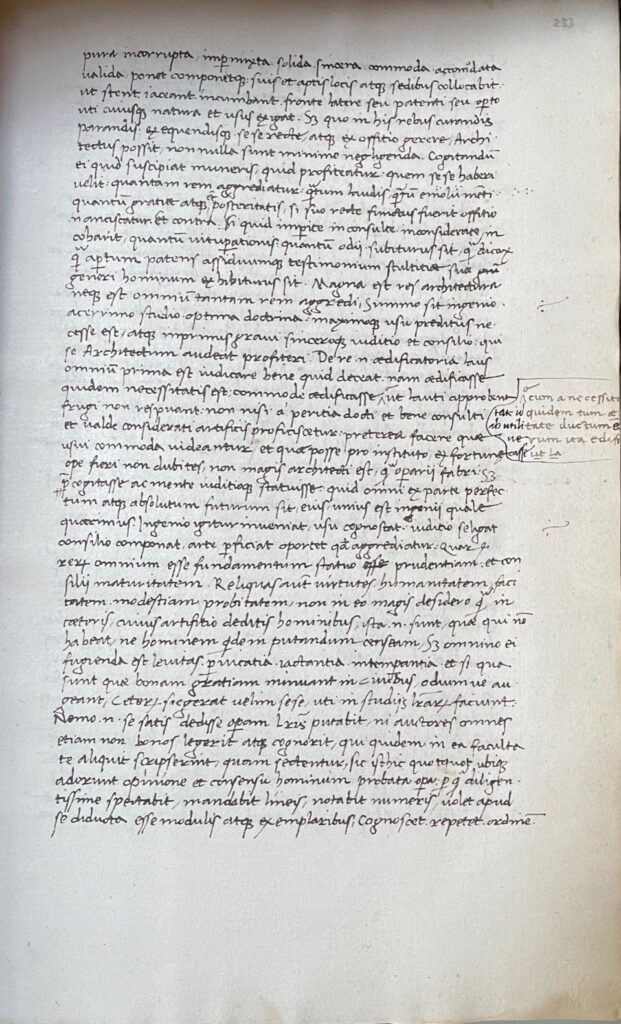 233
pura incorrupta, impermixta, solida, sincera, commoda, accomodata
valida, ponet componetq; suis et aptis locis atq; sedibus collocabit
ut stent, iaceant, incumbant, fronte latere seu patenti seu operto
uti cuiusque natura et usus exigat. Sz quo in his rebus curandis
parandis, exequendisque se se recte, atq; ex offitio gerere, Archi
tectus possit, non nulla sunt minime negligenda. Cogitandū
ei quid suscipiat muneris, quid profiteatur, quem se se haberi
velit, quantam rem aggrediatur, qtum laudis, qtū emolumēti
quantū gratiae atq; posteritatis, si suo recte functus fuerit offitio
nanciscatur. Et contra. Si quid imperite inconsulte, inconsiderate, in
cohărit, quantū vituperationis, quantū odii subiturus sit, q dicax
q apertum patens assiduumque testimonium stultitiae suae
generi hominum exhibiturus sit. Magna est res architectura
neque est omniū tantam rem aggredi, Summo sit ingenio,
acerrimo studio, optima doctrina, maximoq; usu preditus ne
cesse est, atque imprimis gravi sinceroque iuditio et consilio, qui
se Architectum audeat profiteri. De re .n. aedificatoria laus
omniū prima est iudicare bene quid deceat. nam aedificasse
quidem necessitatis est: commode aedificasse, ut lauti approbent
frugi non respuant, non nisi a peritia docti et bene consulti
et valde considerati artificis proficiscetur. preterea facere quae
usui commoda videantur, et quae posse pro instituto, et fortunae
ope fieri non dubites, non magis architecti est, q operarii fabri. Sz
pcogitasse ac mente iuditioq; statuisse, quid omni ex parte perfec
tum atque absolutum futurum sit, eius unius est ingenii quale
quaerimus. Ingenio igitur inveniat, usu cognoscat, iuditio seligat
consilio componat, arte perficiat oportet quae aggrediatur. Quar
rerz omnium esse fundamentum statuo prudentiam, et con
silii maturitatem. Reliquas aut virtutes, humanitatem, faci
tatem, modestiam, probitatem, non in eo magis desidero q in
caeteris, cuius artifitio deditis hominibus, ista .n. sunt, quae qui nō
habeat, ne hominem qdem putandum censeam. Sz omnino ei
fugienda est levitas, pervicatia, iactantia, intemperantia, et si qua
sunt quae bonam gratiam minuant in civibus, odiumve au
geant, Ceterz sic gerat velim sese, uti in studiis lrarz faciunt.
Nemo .n. se satis dedisse operam Lris putabit, ni auctores omnes
etiam non bonos legerit atq; cognorit, qui quidem in ea faculta
te aliquit scripserint, quam sectentur, sic isthic quotquot ubiq;
aderunt opinione et consensu hominum probata opera, p q diligen
tissime spectabit, mandabit lineis, notabit numeris, volet apud
se diducta esse modulis atque exemplaribus, Cognoscet, repetet ordinē
cum a necessita
te quidem tum &
ab utilitate ductum &
ve rum ita edifi
casse ut la